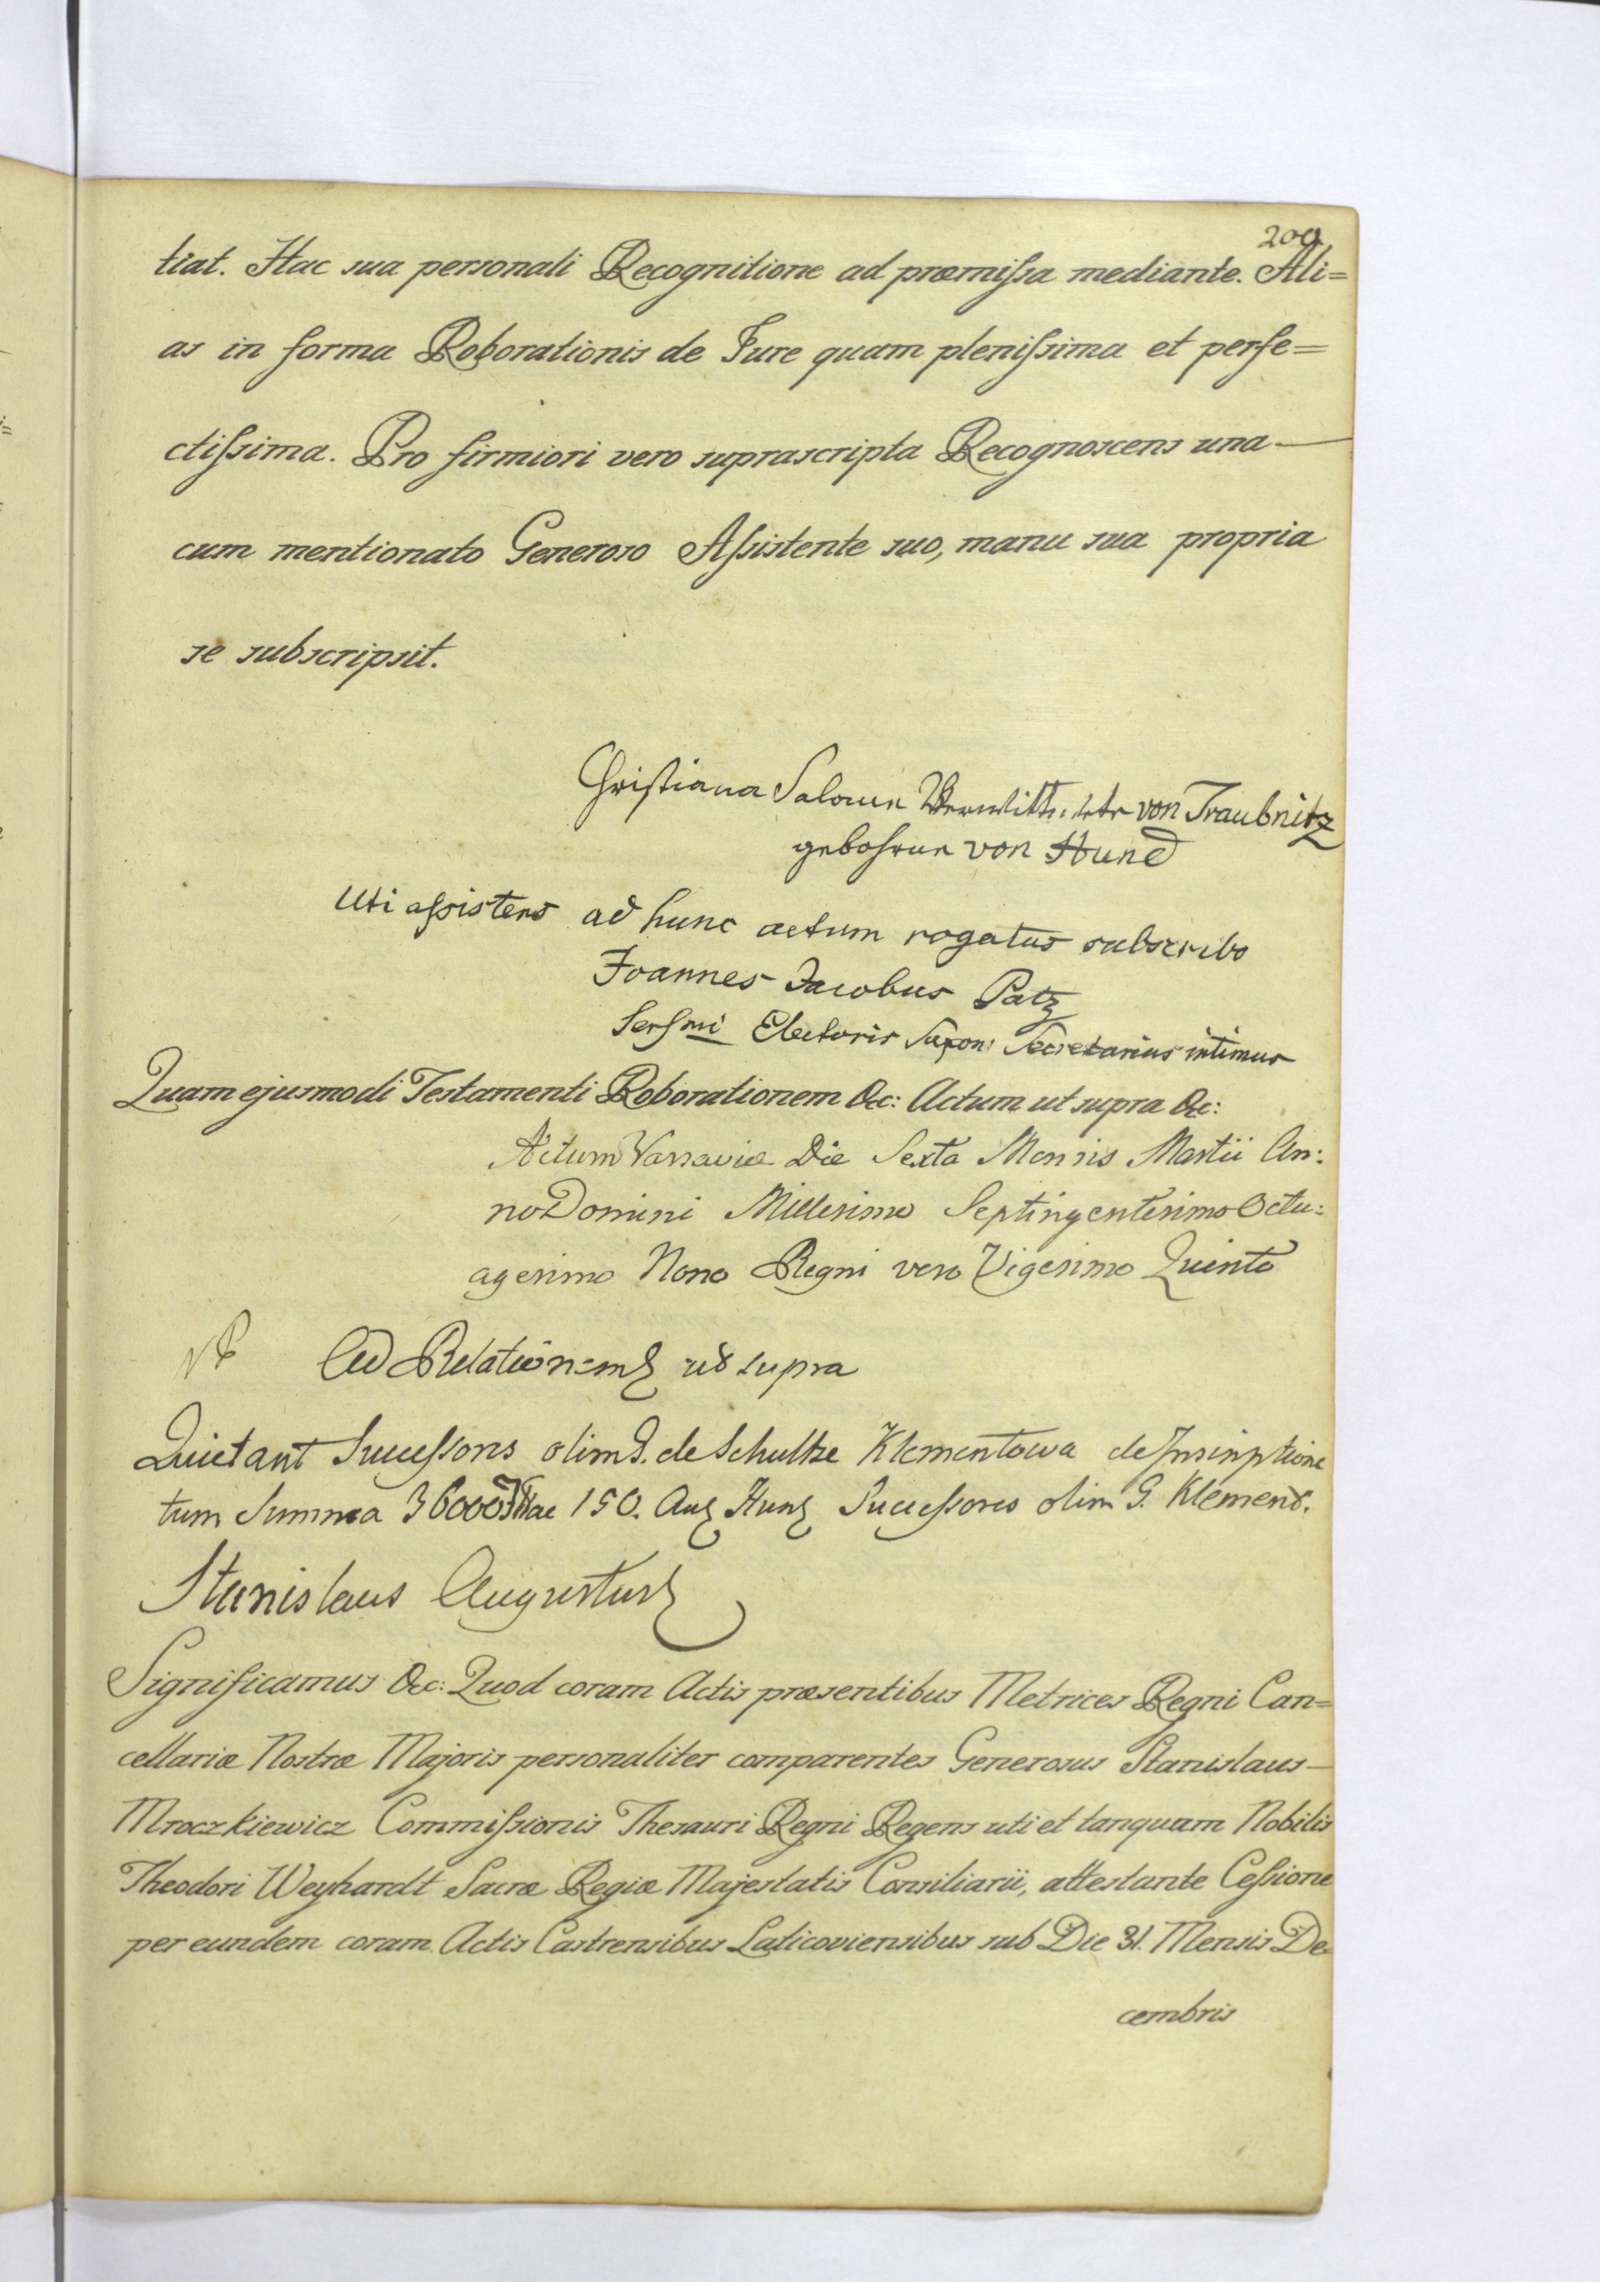 200
tiat. Hac sua personali Recognitione ad præmiſsa mediante. Ali=
as in forma Roborationis de Jure quam pleniſsima et perfe=
ctiſsima. Pro firmiori vero suprascripta Recognoscens una—
cum mentionato Generoso Aſsistente suo, manu sua propria
se subscripsit.
Christiana Salome von Traubnitz
gebohrne von Hund
Uti aſsistens ad hunc actum rogatus subscribo
Joannes Jacobus Patz
Serſmi Electoris Saxon: Secretarius intimus
Quam ejusmodi Testamenti Roborationem &c: Actum ut supra &c:
Actum Varsaviæ Die Sexta Mensis Martii An:
no Domini Millesimo Septingentesimo Octu:
agesimo Nono Regni vero Vigesimo Quinto
Ad Relationem ut supra
Quietant Succeſsores olim G. de Schultze Klementowa de Inscriptione
tum Summa 36000 150. Succeſsores olim G. Klement.
Stanislaus Augustus
Significamus &c: Quod coram Actis præsentibus Metrices Regni Can=
cellariæ Nostræ Majoris personaliter comparentes Generosus Stanislaus—
Mroczkiewicz Commiſsionis Thesauri Regni Regens uti et tanquam Nobilis
Theodori Weyhardt Sacræ Regiæ Majestatis Consiliarii, attestante Ceſsione
per eundem coram Actis Castrensibus Laticoviensibus sub Die 31. Mensis De=
cembris